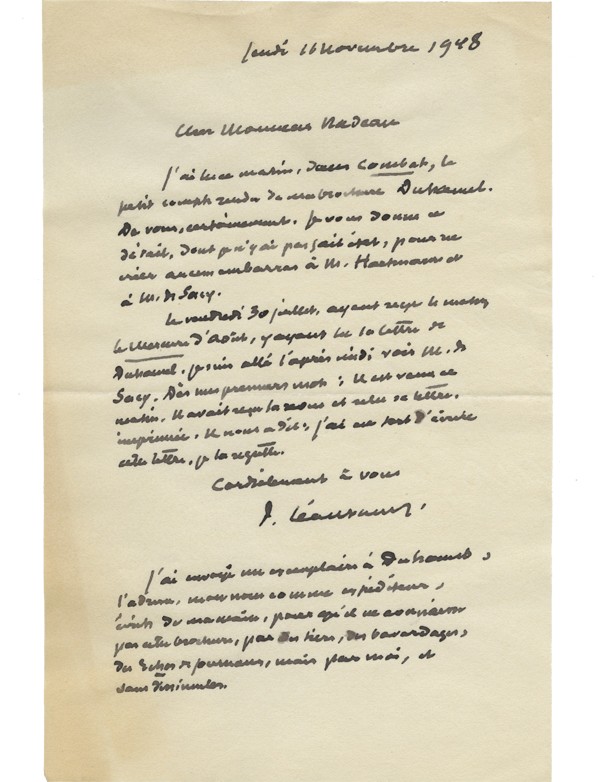 Jeudi 11 Novembre 1948
Cher Monsieur Nadeau
J'ai lu ce matin, dans Combat, le
petit compte rendu de ma brochure Duhamel.
De vous, certainement. Je vous donne ce
détail, dont je n'ai pas fait état, pour ne
créer aucun embarras à M. Hartmann et
à M. de Sacy.
Le vendredi 30 juillet, ayant reçu le matin
le Mercure d'Août, y ayant lu la lettre de
Duhamel, je suis allé l'après midi voir M. de
Sacy. Dès mes premiers mots : Il est venu ce
matin. Il avait reçu la revue et relu sa lettre,
imprimée. Il nous a dit : j'ai eu tort d'écrire
cette lettre, je la regrette.
Cordialement à vous
P. Léautaud.
J'ai envoyé un exemplaire à Duhamel,
l'adresse, mon nom comme expéditeur,
écrits de ma main, pour qu'il ne connaisse
pas cette brochure, par des tiers, des bavardages,
des Echos de journaux, mais par moi, et
sans dissimuler.